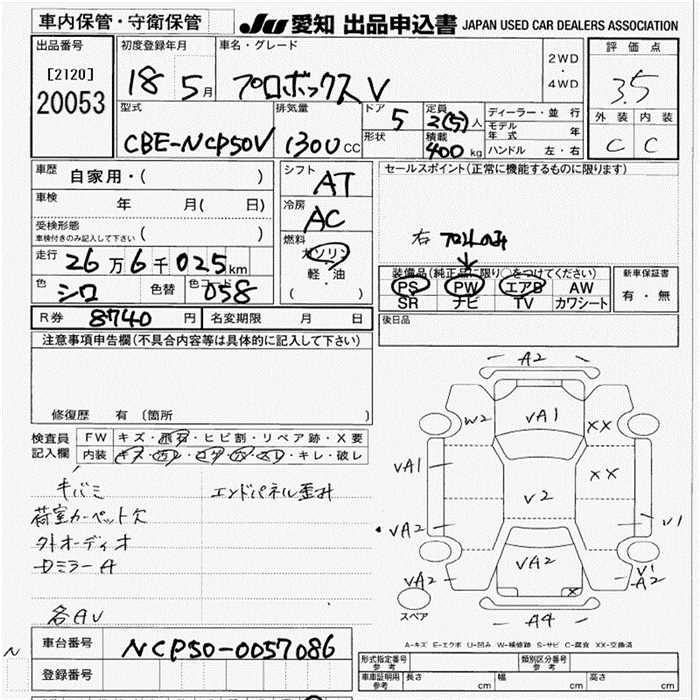 車内保管・守衛保管
JU 愛知 出品申込書 JAPAN USED CAR DEALERS ASSOCIATION
出品番号
[2120]
20053
初度登録年月
18 5月
車名・グレード
プロボックス V
2WD
・
4WD
評価点
3.5
外装 内装
C C
型式
CBE-NCP50V
排気量
1300 CC
ドア
5
形状
定員
2(5)人
積載
400 kg
ディーラー・並行
モデル年式 年
ハンドル 左・右
車歴
自家用・( )
車検
年 月( 日)
受検形態
車検付きのみ記入して下さい ( )
走行
26万6千025km
色
シロ
色替
色コード
058
シフト
AT
冷房
AC
燃料
ガソリン
軽・油
( )
セールスポイント(正常に機能するものに限ります)
右 フロントのみ
装備品(純正品に限り○をつけてください)
PS PW エアB AW
SR ナビ TV カワシート
新車保証書
有・無
R券 8740 円 名変期限 月 日
後日品
注意事項申告欄(不具合内容等は具体的に記入して下さい)
修復歴 有 (箇所 )
検査員
記入欄
FW キズ・飛石・ヒビ割・リペア跡・X要
内装 キズ・汚レ・コゲ・穴・スレ・キレ・破レ
キバミ
エンドパネル歪み
荷室カーペット欠
外オーディオ
Dミラー A
各AU
A2
W2
VA1
XX
VA1
XX
V2
VA2
V1
VA2
VA2
X
V1
A2
A4
スペア
A-キズ E-エクボ U-凹み W-補修跡 S-サビ C-腐食 XX-交換済
N
車台番号 NCP50-0057086
登録番号
形式指定番号
参考
類別区分番号
参考
車庫証明用
参考
長さ cm 幅 cm 高さ cm